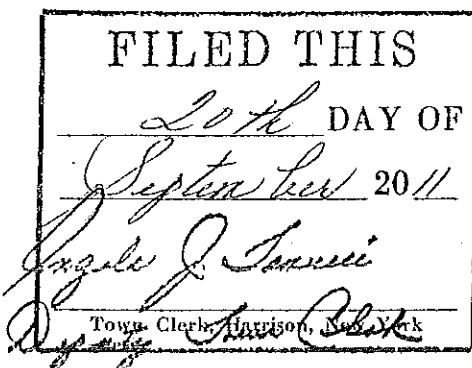 FILED THIS
20th DAY OF
September 2011
Angelo J.
Town Clerk, Harrison, New York
Deputy Town Clerk